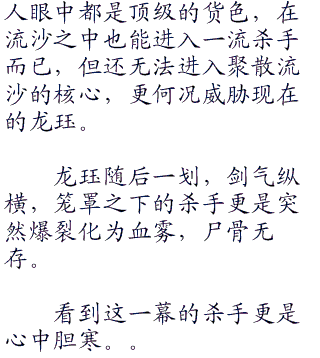 人眼中都是顶级的货色，在
流沙之中也能进入一流杀手
而已，但还无法进入聚散流
沙的核心，更何况威胁现在
的龙珏。
龙珏随后一划，剑气纵
横，笼罩之下的杀手更是突
然爆裂化为血雾，尸骨无
存。
看到这一幕的杀手更是
心中胆寒。。